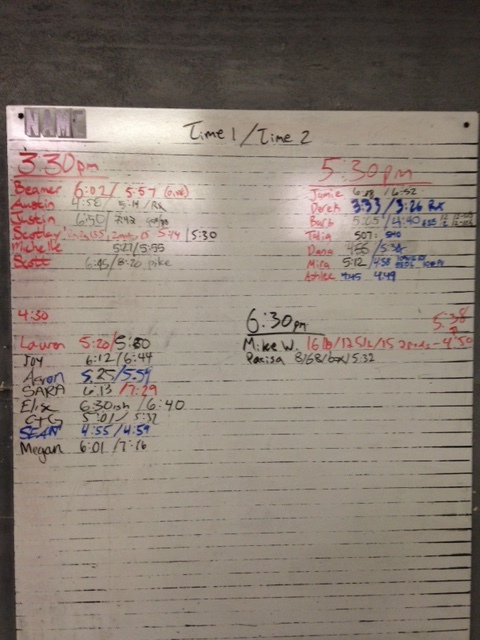 NAME
Time 1 / Time 2
3:30pm
Beamer 6:02 / 5:57
Austin 4:58 / 5:14 / Rx
Justin 6:50 / 7:42
Scotley 5:44 / 5:30
Michelle 5:27 / 5:55
Scott 6:45 / 8:20 pike
5:30pm
Jamie 6:08 / 6:52
Derek 3:33 / 3:26 Rx
Barb 5:05 / 4:40
Talia 5:07 :
Dana 4:55 / 5:38
Mira 5:12 / 4:58
Ashlee 4:45 4:49
4:30
Lauren 5:20 / 5:30
Joy 6:12 / 6:44
Aaron 5:25 / 5:59
SARA 6:13 / 7:29
Elise 6:30ish / 6:40
5:01 / 5:32
SEAN 4:55 / 4:59
Megan 6:01 / 7:16
6:30pm
5:38
Mike W. 16lb / 12 / 15 4:50
Parisa 8 / 6B / box / 5:32